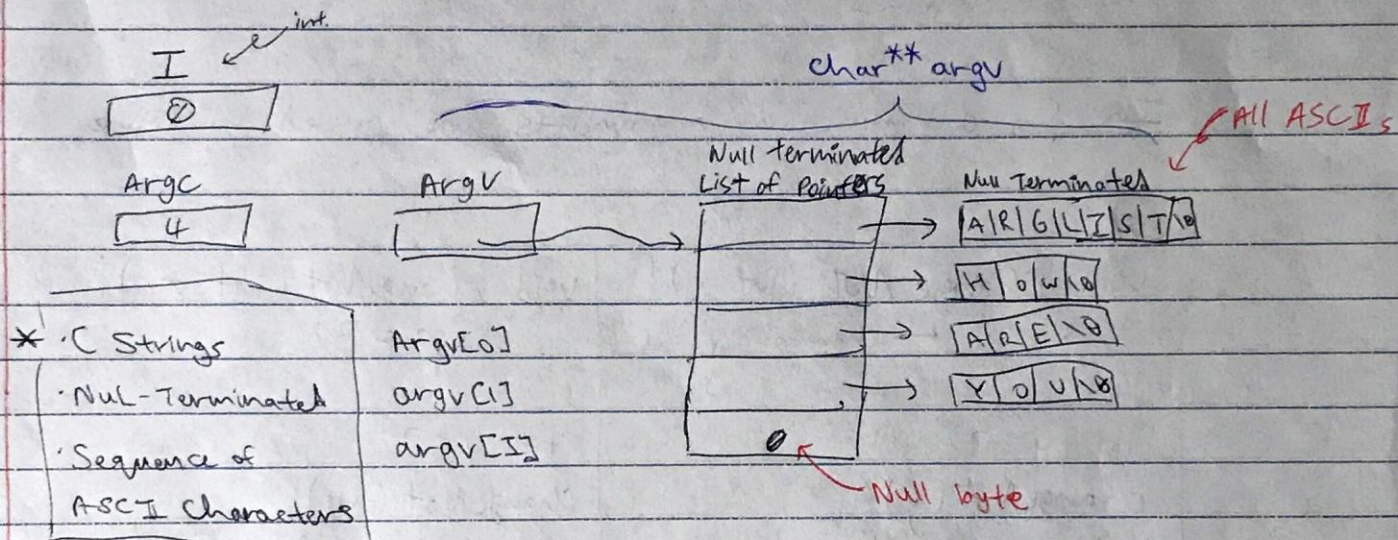 int.
I
0
char** argv
All ASCIIs
Null terminated
List of Pointers
Null Terminated
Argc
ArgV
4
A|R|G|L|I|S|T|\0
H|O|W|\0
A|R|E|\0
Y|O|U|\0
0
Null byte
* · C Strings
· NUL-Terminated
· Sequence of
ASCII Characters
Argv[0]
argv[1]
argv[I]